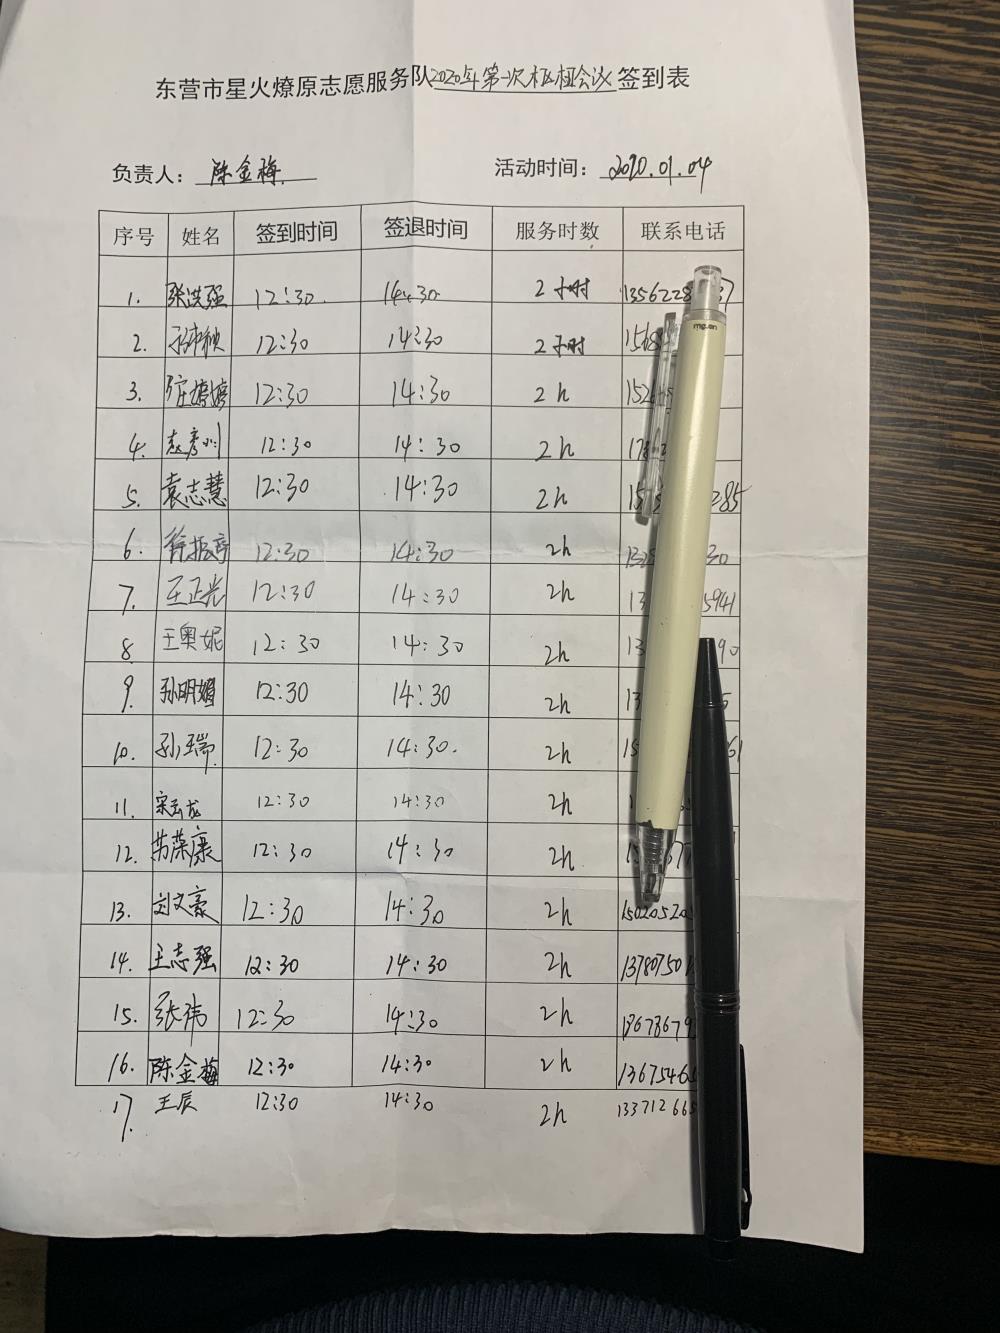 东营市星火燎原志愿服务队2020年第一次枢机会议签到表
负责人：陈金梅 活动时间：2020.01.04
序号 姓名 签到时间 签退时间 服务时数 联系电话
1. 张洪强 12:30 14:30 2小时 1356228 37
2. 12:30 14:30 2小时 1568
3. 12:30 14:30 2h 152
4. 赵彦川 12:30 14:30 2h 17
5. 袁志慧 12:30 14:30 2h 15 285
6. 12:30 14:30 2h 132 30
7. 王正光 12:30 14:30 2h 13 5941
8. 王奥妮 12:30 14:30 2h 13 90
9. 孙明媚 12:30 14:30 2h 13
10. 孙瑞 12:30 14:30. 2h 15 61
11. 宋云龙 12:30 14:30 2h
12. 苏荣康 12:30 14:30 2h
13. 刘文豪 12:30 14:30 2h 150205205
14. 王志强 12:30 14:30 2h 13780750
15. 张祎 12:30 14:30 2h 1867867
16. 陈金梅 12:30 14:30 2h 1367546
17. 王辰 12:30 14:30 2h 13371266